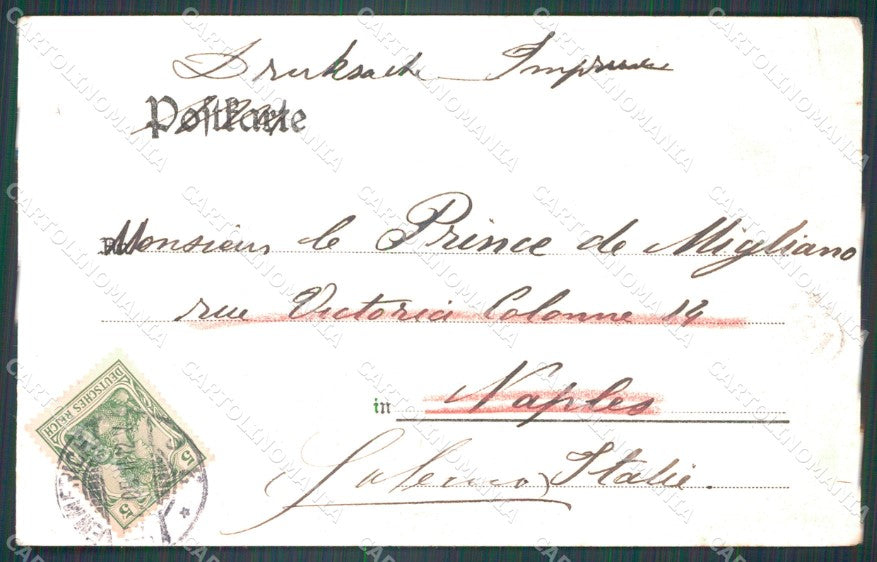 Drucksache Imprimé
Postkarte
Monsieur le Prince de Migliano
rue Victoria Colonne 14
in Naples
Salerno Italie.
DEUTSCHES REICH
5 5
CARTOLINOMANIA